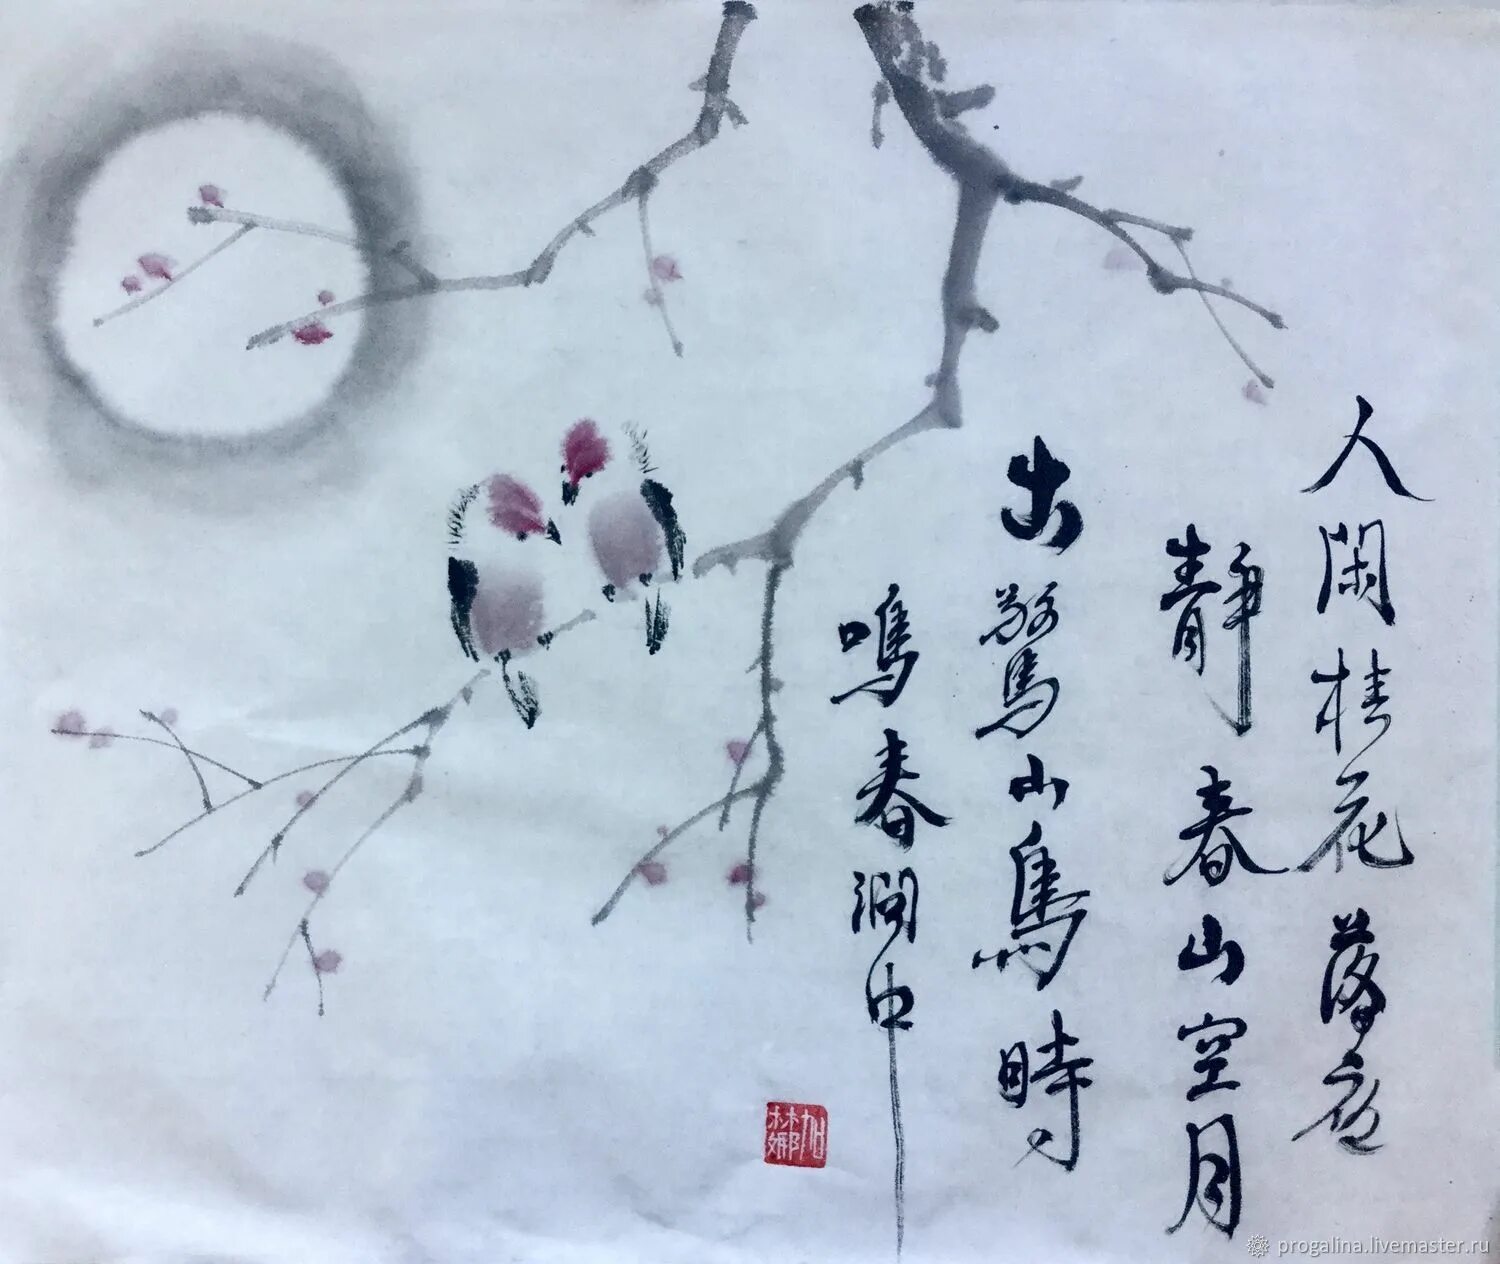 人閑桂花落夜
靜春山空月
出驚山鳥時
鳴春澗中
progalina.livemaster.ru